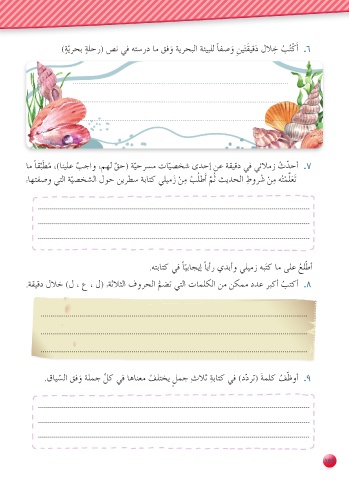 ٦. أَكْتُبُ خِلال دَقيقَتَينِ وَصفاً للبيئة البحرية وَفق ما درسته في نص (رحلةٍ بحريّةٍ)
٧. أحدّثُ زملائي في دقيقة عن إحدى شخصيّات مسرحيّة (حقّ لهم، واجبٌ علينا)، مُطبِّقاً ما
تَعَلَّمْتُه مِنْ شُروطِ الحَديث ثُمَّ أَطلُبُ مِنْ زَميلي كتابة سطرين حول الشخصيّة التي وصفتها.
أطّلعُ على ما كتَبه زميلي وأبدي رأياً إيجابيّاً في كتابته.
٨. أكتبُ أكبر عدد ممكن من الكلمات التي تَضمّ الحروف الثلاثة، (ل ، ع ، ل) خلال دقيقة.
٩. أوظّفُ كلمةَ (تردّد) في كتابةِ ثلاثِ جملٍ يختلفُ معناها في كلّ جملة وَفق السّياق.